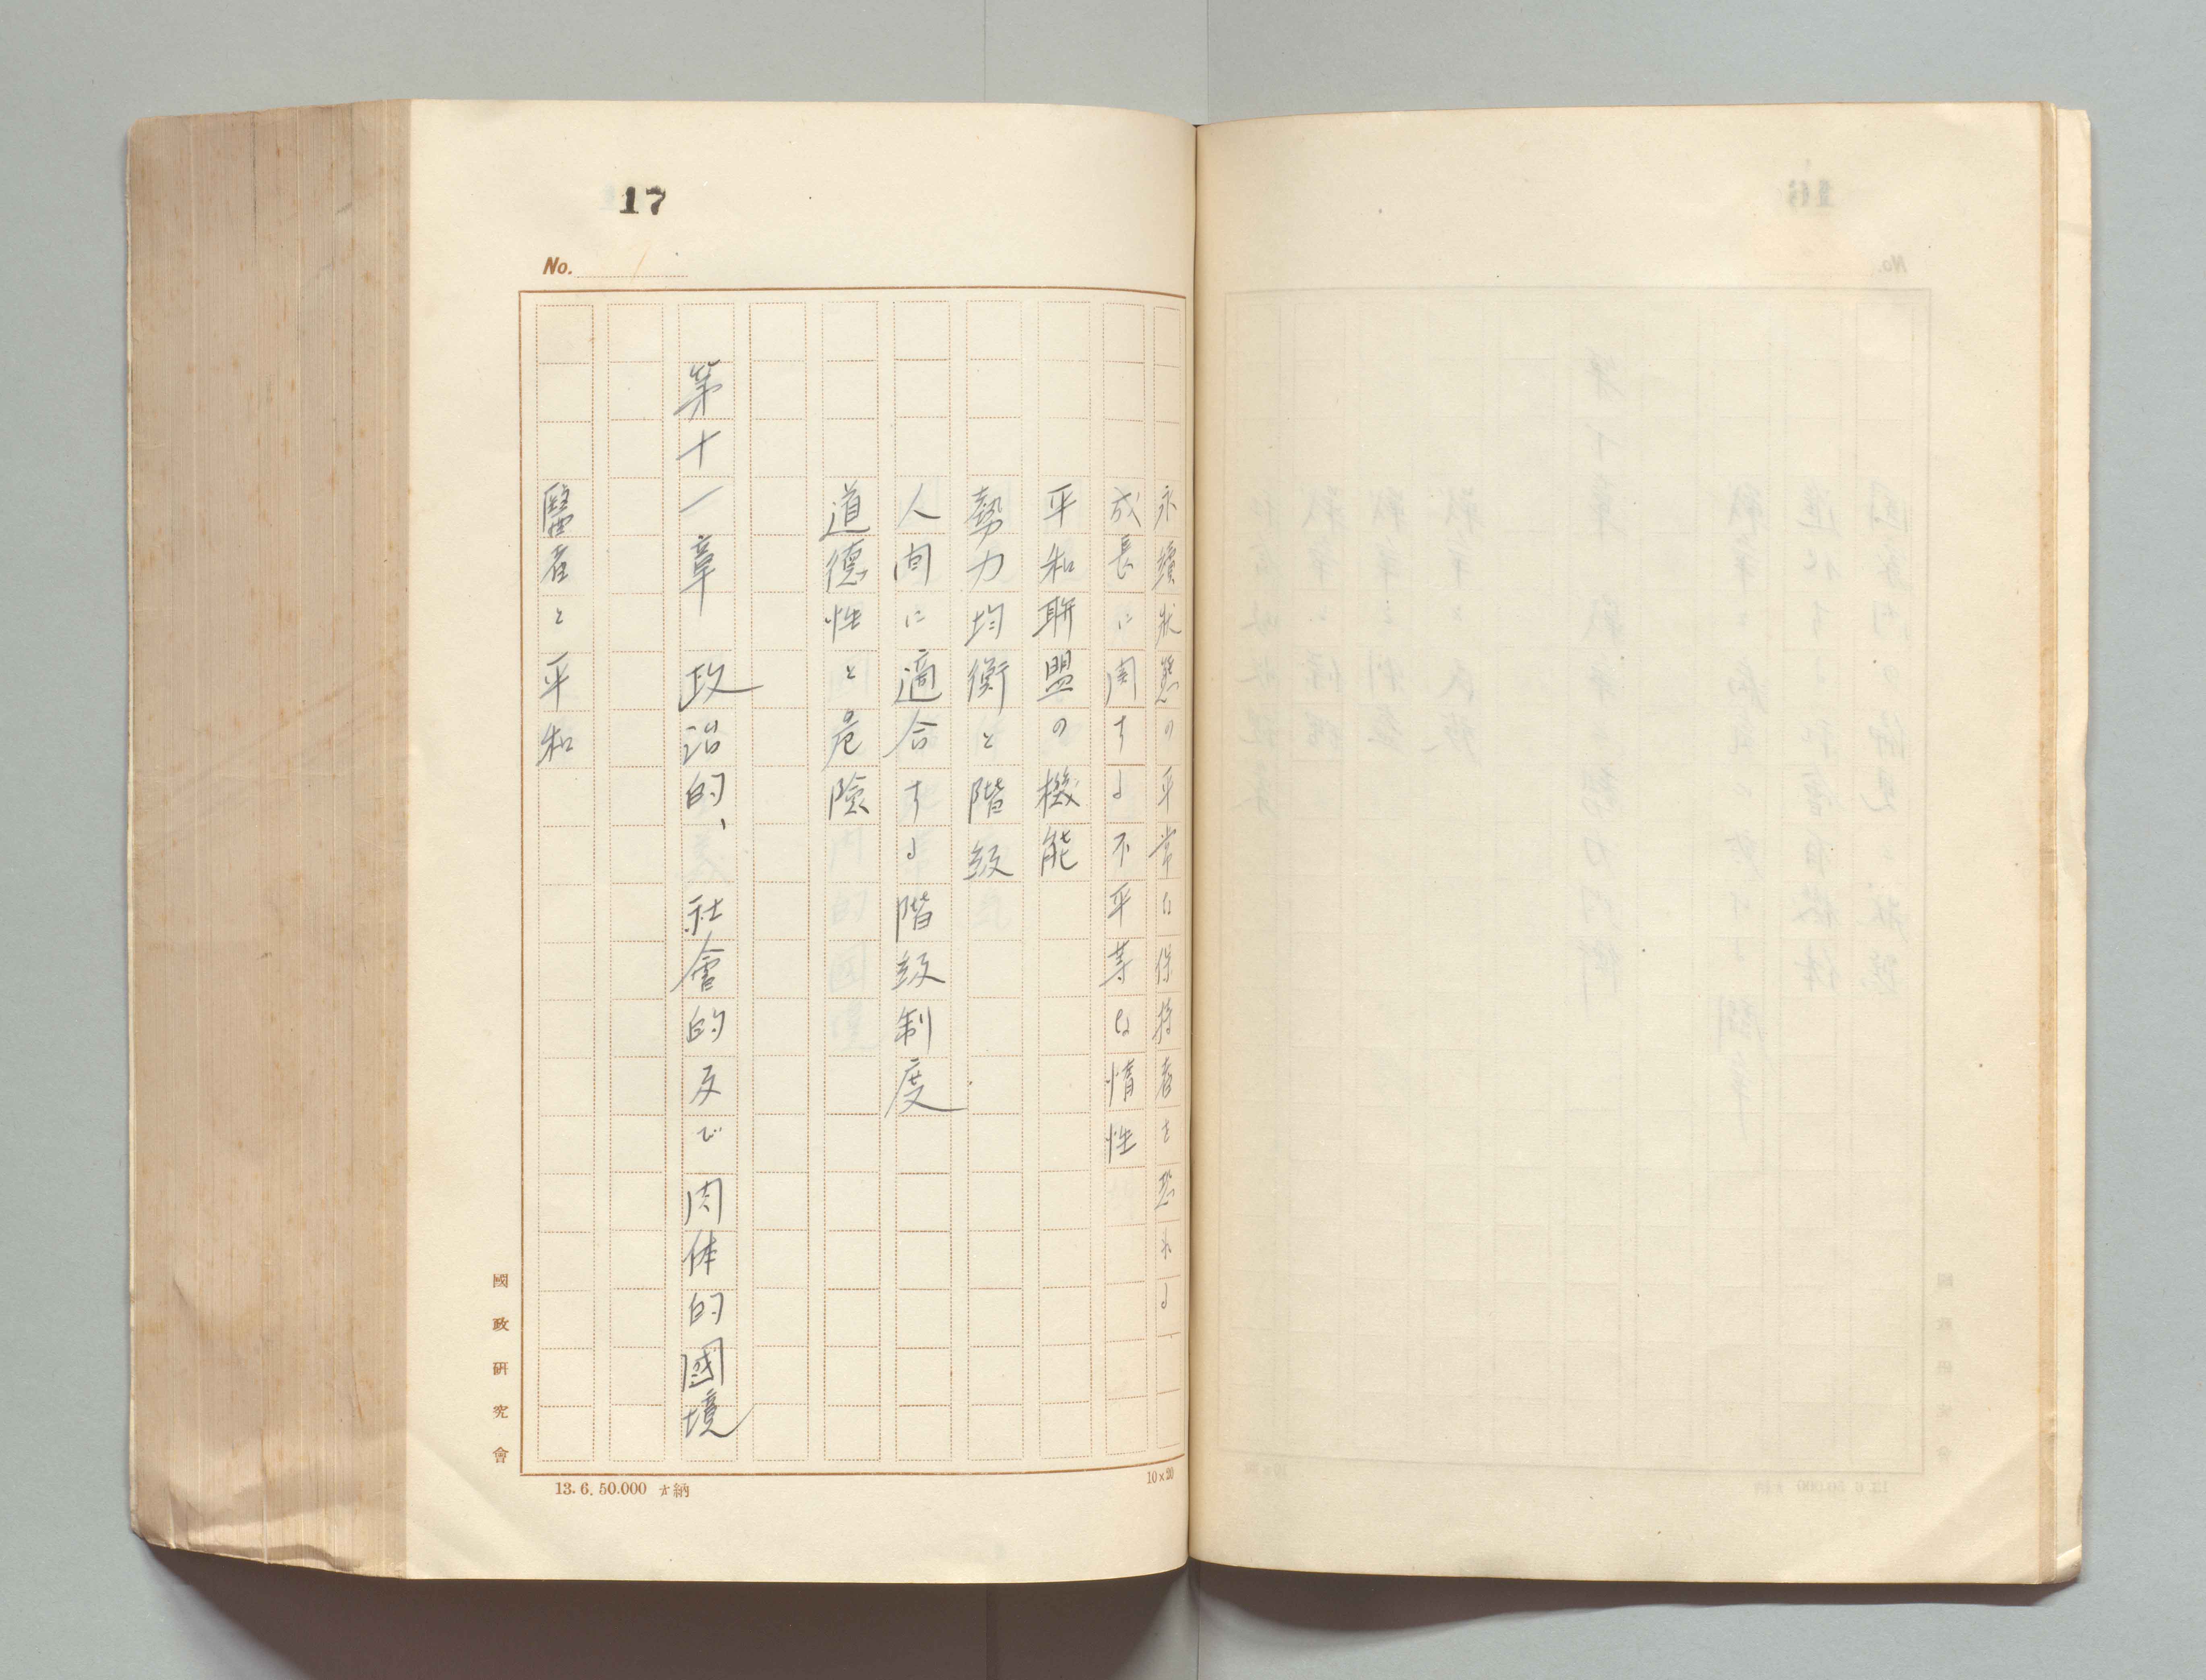 17
No. 7
永續狀態の平常な保持者を恐れよ
成長に関する不平等な惰性
平和聯盟の機能
勢力均衡と階級
人间に適合する階級制度
道德性と危險
第十一章 政治的、社會的及び肉体的國境
醫者と平和
國政研究會
13.6.50.000 納
10×20